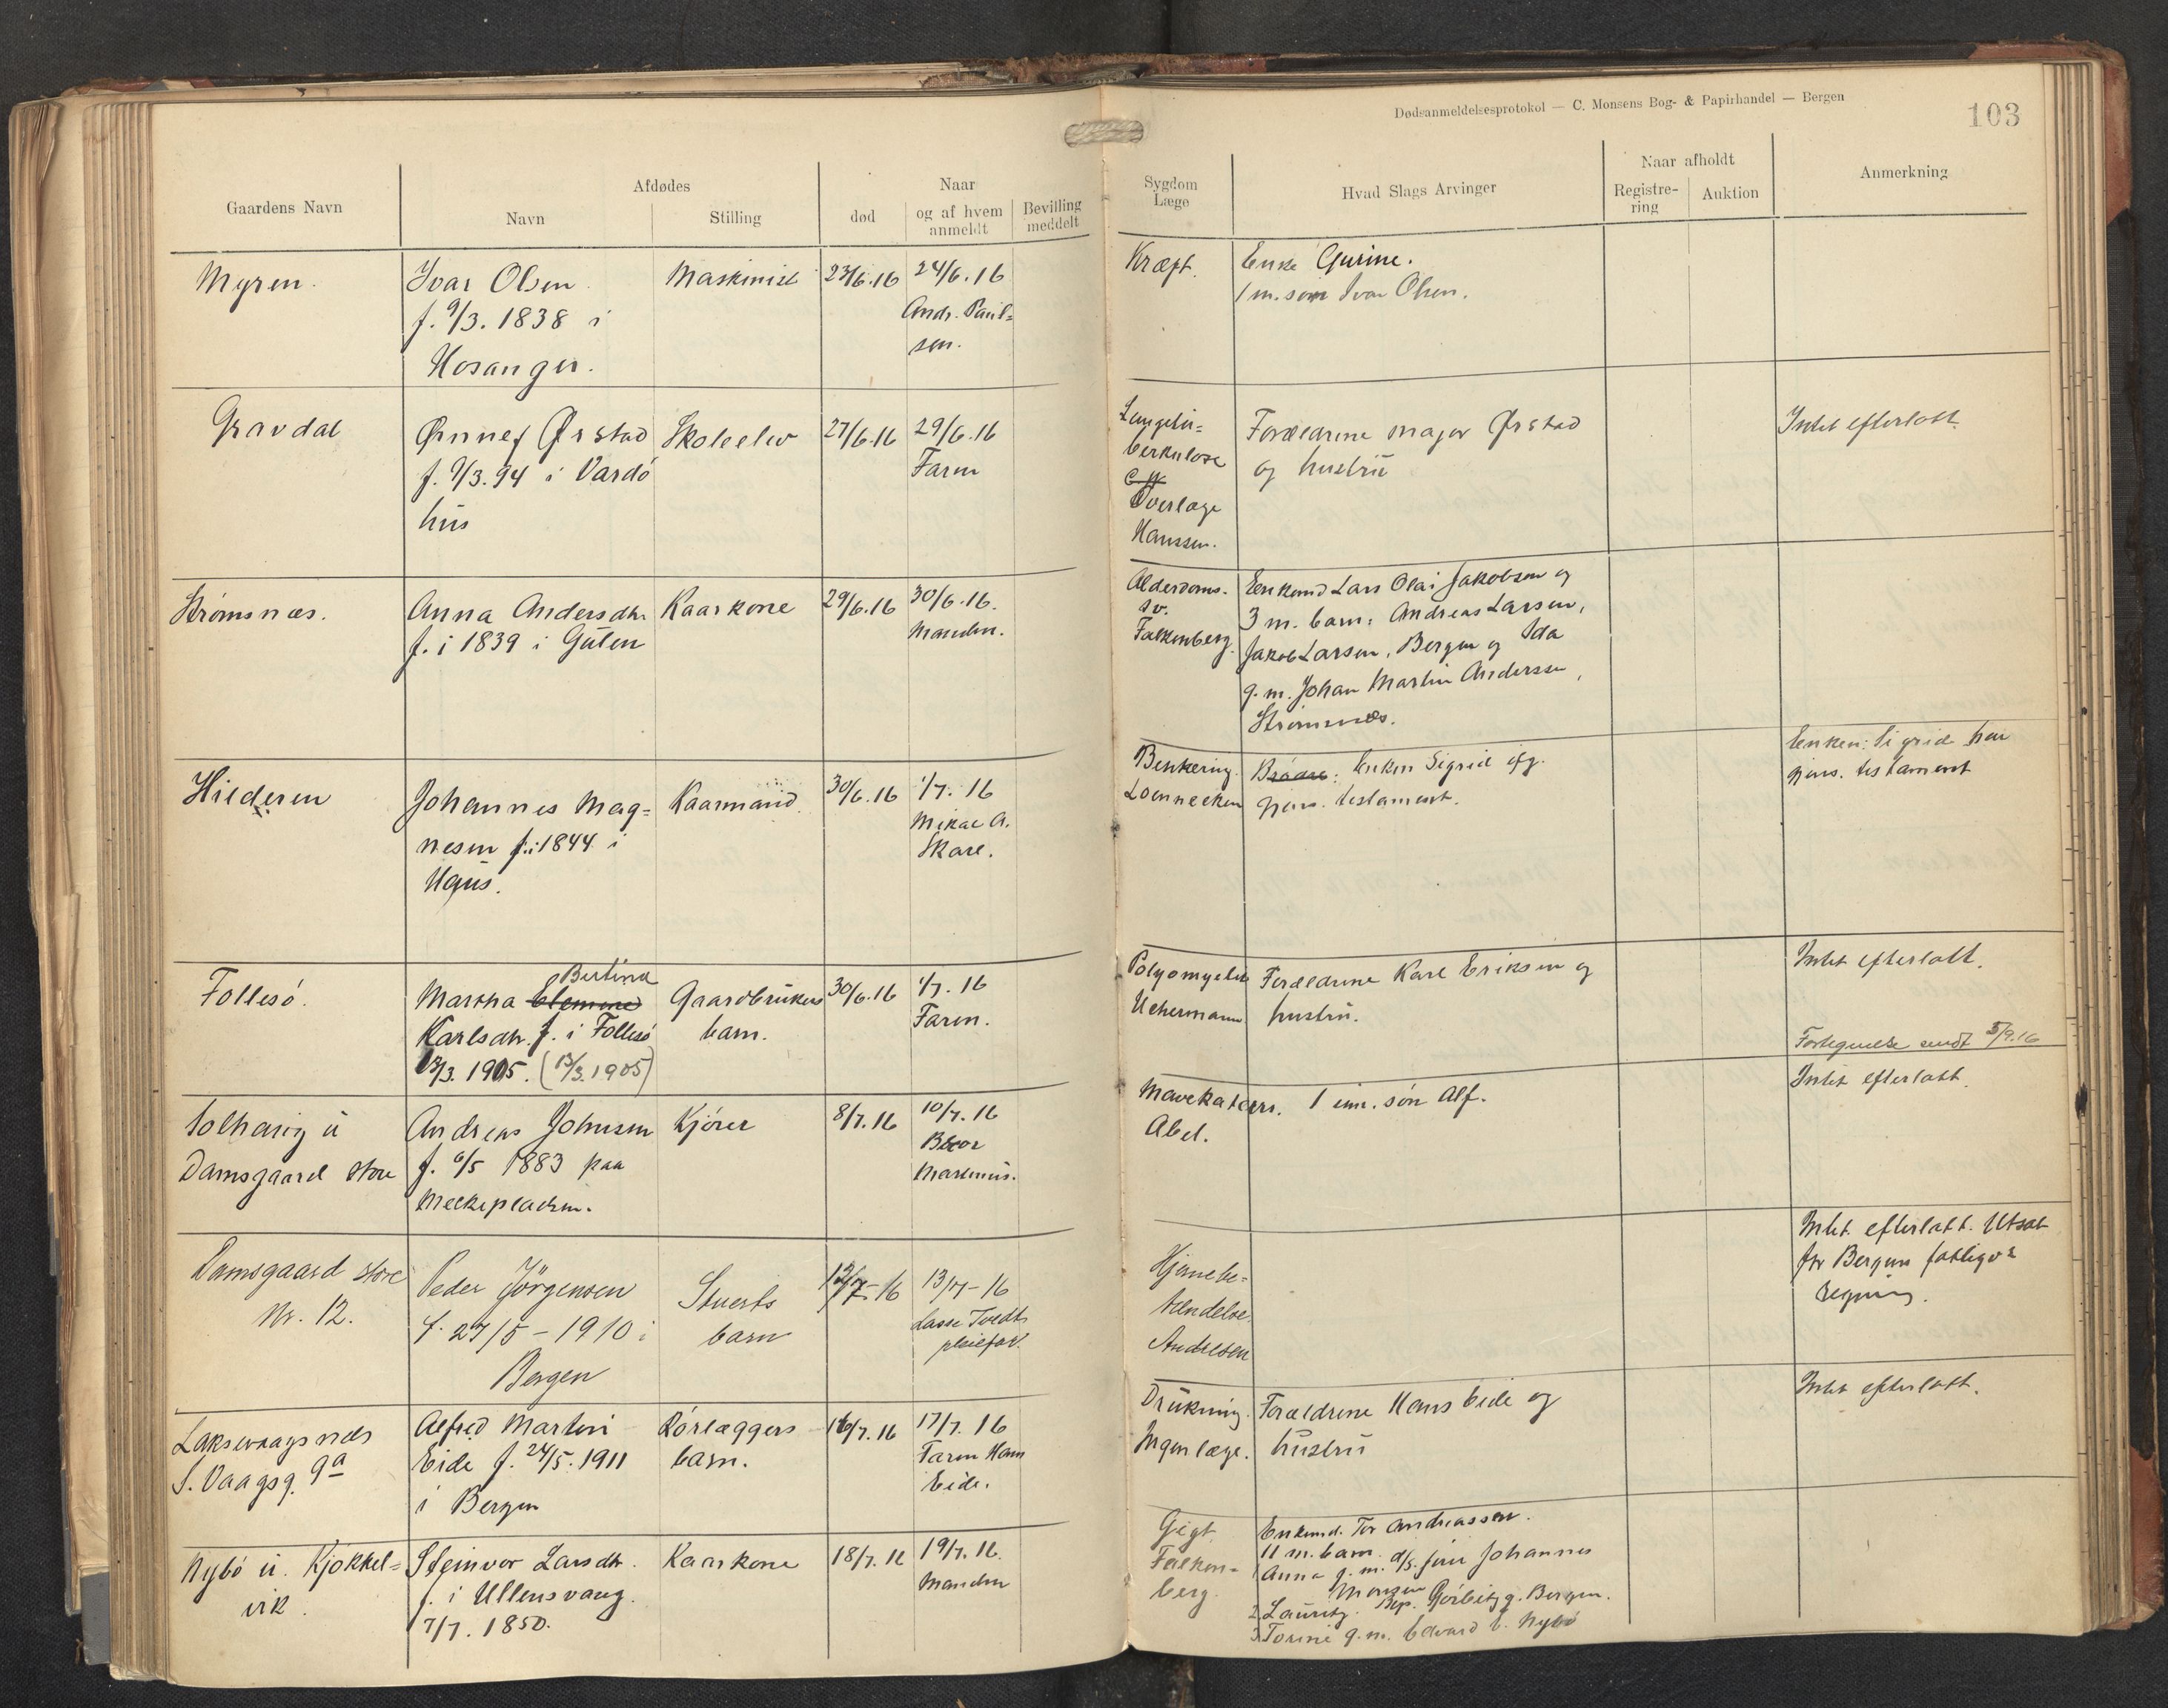 Dødsanmeldelsesprotokol — C. Monsens Bog- & Papirhandel — Bergen
103
Gaardens Navn
Afdødes
Navn
Stilling
Naar
død
og af hvem
anmeldt
Bevilling
meddelt
Sygdom
Læge
Hvad Slags Arvinger
Naar afholdt
Registre-
ring
Auktion
Anmerkning
Myren.
Ivar Olsen.
f. 9/3. 1838 i
Hosanger.
Maskinist
23/6.16
24/6.16
Andr. Paul=
sen.
Kræft.
Enke Gurine.
1 m. søn Ivar Olsen.
Gravdal
Ørnnef Ørstad
f. 9/3.94 i Vardö
hus
Skoleelev
27/6.16
29/6.16
Faren
Lungetu=
berkulose
Overlæge
Hanssen.
Forældrene major Ørstad
og hustru
Intet efterlatt.
Strömsnæs.
Anna Andersdtr.
f. i 1839 i Gulen
Kaarkone
29/6.16
30/6.16.
Manden.
Alderdoms.
sv.
Falkenberg.
Enkemd Lars Olai Jakobsen og
3 m. barn: Andreas Larsen,
Jakob Larsen, Bergen og Ida
g. m. Johan Martin Anderssen,
Strömsnæs.
Hilderen
Johannes Mag=
nesen f. i 1844 i
Haus.
Kaarmand.
30/6.16
1/7.16
Mikal A.
Skare.
Benkæring.
Loennecken
Brödre: Enken Sigrid ifg.
gjens. testament.
Enken: Sigrid har
gjens. testament
Follesö.
Bertina
Martha
Karlsdtr. f. i Follesö
13/3.1905. (13/3.1905)
Gaardbrukers
barn.
30/6.16
1/7.16
Faren.
Polyomyelit
Uchermann
Forældrene Karl Eriksen og
hustru.
Intet efterlatt.
Fortegnelse sendt 5/9.16
Solhaug u
Damsgaard store
Andreas Johnsen
f. 6/5 1883 paa
Møllepladsen.
Kjörer
8/7.16
10/7.16
Bror
Martinus.
Mavekatarr.
Abel.
1 um. søn Alf.
Intet efterlatt.
Damsgaard store
Nr. 12.
Peder Jörgensen
f. 27/5-1910 i
Bergen
Stuerts
barn
12/7-16
13/7-16
Lasse Tvedt
pleiefar.
Hjernebe=
tændelse.
Andresen
Intet efterlatt. Utsat
for Bergens fattigv s
regning.
Laksevaagsnes
S. Vaagsg. 9a
Alfred Martin
Eide f. 24/5.1911
i Bergen
Rörlæggers
barn.
16/7.16
17/7.16
Faren Hans
Eide.
Drukning.
Ingen læge.
Forældrene Hans Eide og
hustru
Intet efterlatt.
Nybö u. Kjökkel=
vik.
Steinvor Larsdtr.
f. i Ullensvang.
7/7. 1850.
Kaarkone
18/7.16
19/7.16.
Manden
Gigt.
Falken=
berg.
Enkemd. Tor Andreassen.
11 m. barn.
1 Anna g. m. Johannes
Monsen Bergen.
2 Lauritz.
3 Torine g. m. Edvard E. Nybö